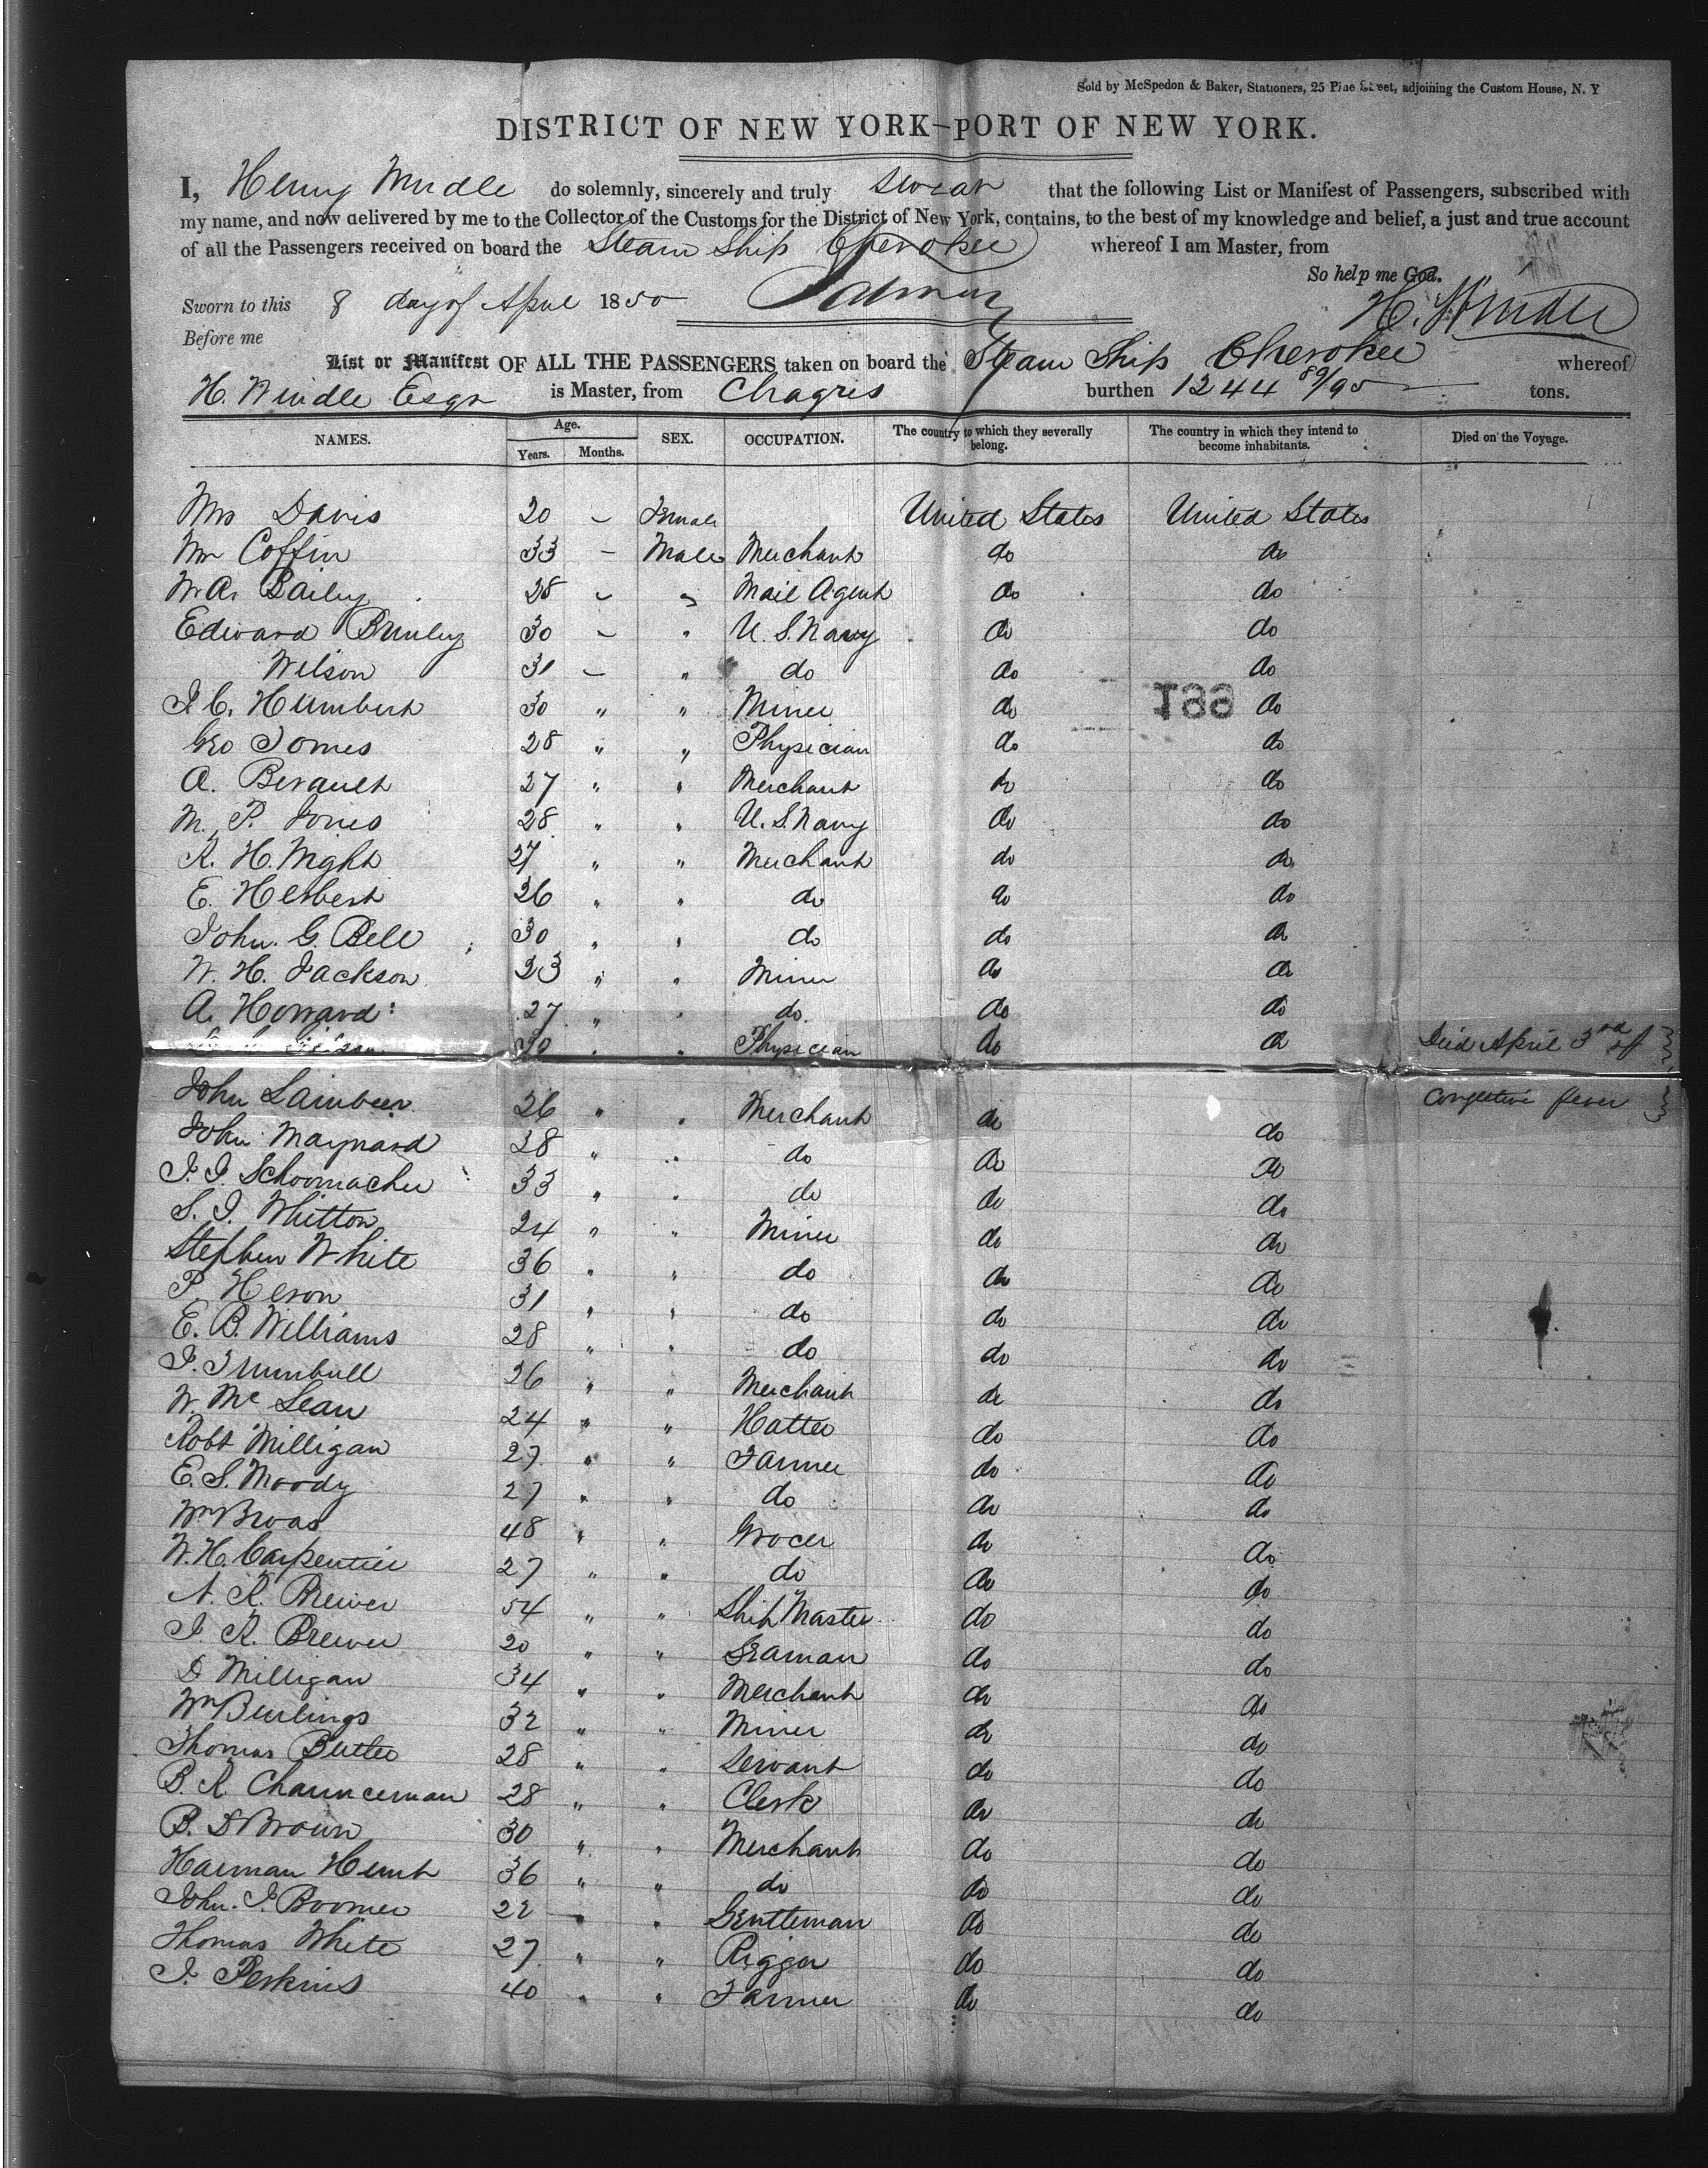 Sold by McSpedon & Baker, Stationers, 25 Pine Street, adjoining the Custom House, N. Y
DISTRICT OF NEW YORK—PORT OF NEW YORK.
I, Henry Windle do solemnly, sincerely and truly swear that the following List or Manifest of Passengers, subscribed with
my name, and now delivered by me to the Collector of the Customs for the District of New York, contains, to the best of my knowledge and belief, a just and true account
of all the Passengers received on board the Steam Ship Cherokee whereof I am Master, from
So help me God.
Sworn to this 8 day of April 1850
H. Windle
Before me
List or Manifest OF ALL THE PASSENGERS taken on board the Steam Ship Cherokee whereof
H. Windle Esqr is Master, from Chagres burthen 1244 89/95 tons.
NAMES. Age. Years. Months. SEX. OCCUPATION. The country to which they severally belong. The country in which they intend to become inhabitants. Died on the Voyage.
Mrs Davis 20 – Female United States United States
Mr Coffin 33 – Male Merchant do do
W. A. Bailey 28 – " Mail Agent do do
Edward Brinley 30 – " U. S. Navy do do
Wilson 31 – " do do do
199
J. C. Humbert 30 " " Miner do do
Geo Tomes 28 " " Physician do do
A. Berault 27 " " Merchant do do
M. P. Jones 28 " " U. S. Navy do do
R. H. Wight 27 " " Merchant do do
E. Herbert 26 " " do do do
John. G. Bell 30 " " do do do
W. H. Jackson 23 " " Miner do do
A. Howard 27 " " do do do
30 " " Physician do do Died April 3rd of
congestive fever
John Lambeer 26 " " Merchant do do
John Maynard 28 " " do do do
J. J. Schoonmacher 33 " " do do do
S. J. Whitton 24 " " Miner do do
Stephen White 36 " " do do do
P. Heron 31 " " do do do
E. B. Williams 28 " " do do do
J. Trumbull 26 " " Merchant do do
W. McLean 24 " " Hatter do do
Robt Milligan 27 " " Farmer do do
E. S. Moody 27 " " do do do
Wm Broas 48 " " Grocer do do
W. H. Carpentier 27 " " do do do
N. R. Brewer 54 " " Ship Master do do
J. R. Brewer 20 " " Seaman do do
D Milligan 34 " " Merchant do do
Wm Burlings 32 " " Miner do do
Thomas Butler 28 " " Servant do do
B. R. Chaunceman 28 " " Clerk do do
B. D Brown 30 " " Merchant do do
Harman Hunt 36 " " do do do
John. J. Boomer 22 – " Gentleman do do
Thomas White 27 " " Rigger do do
J. Perkins 40 " " Farmer do do